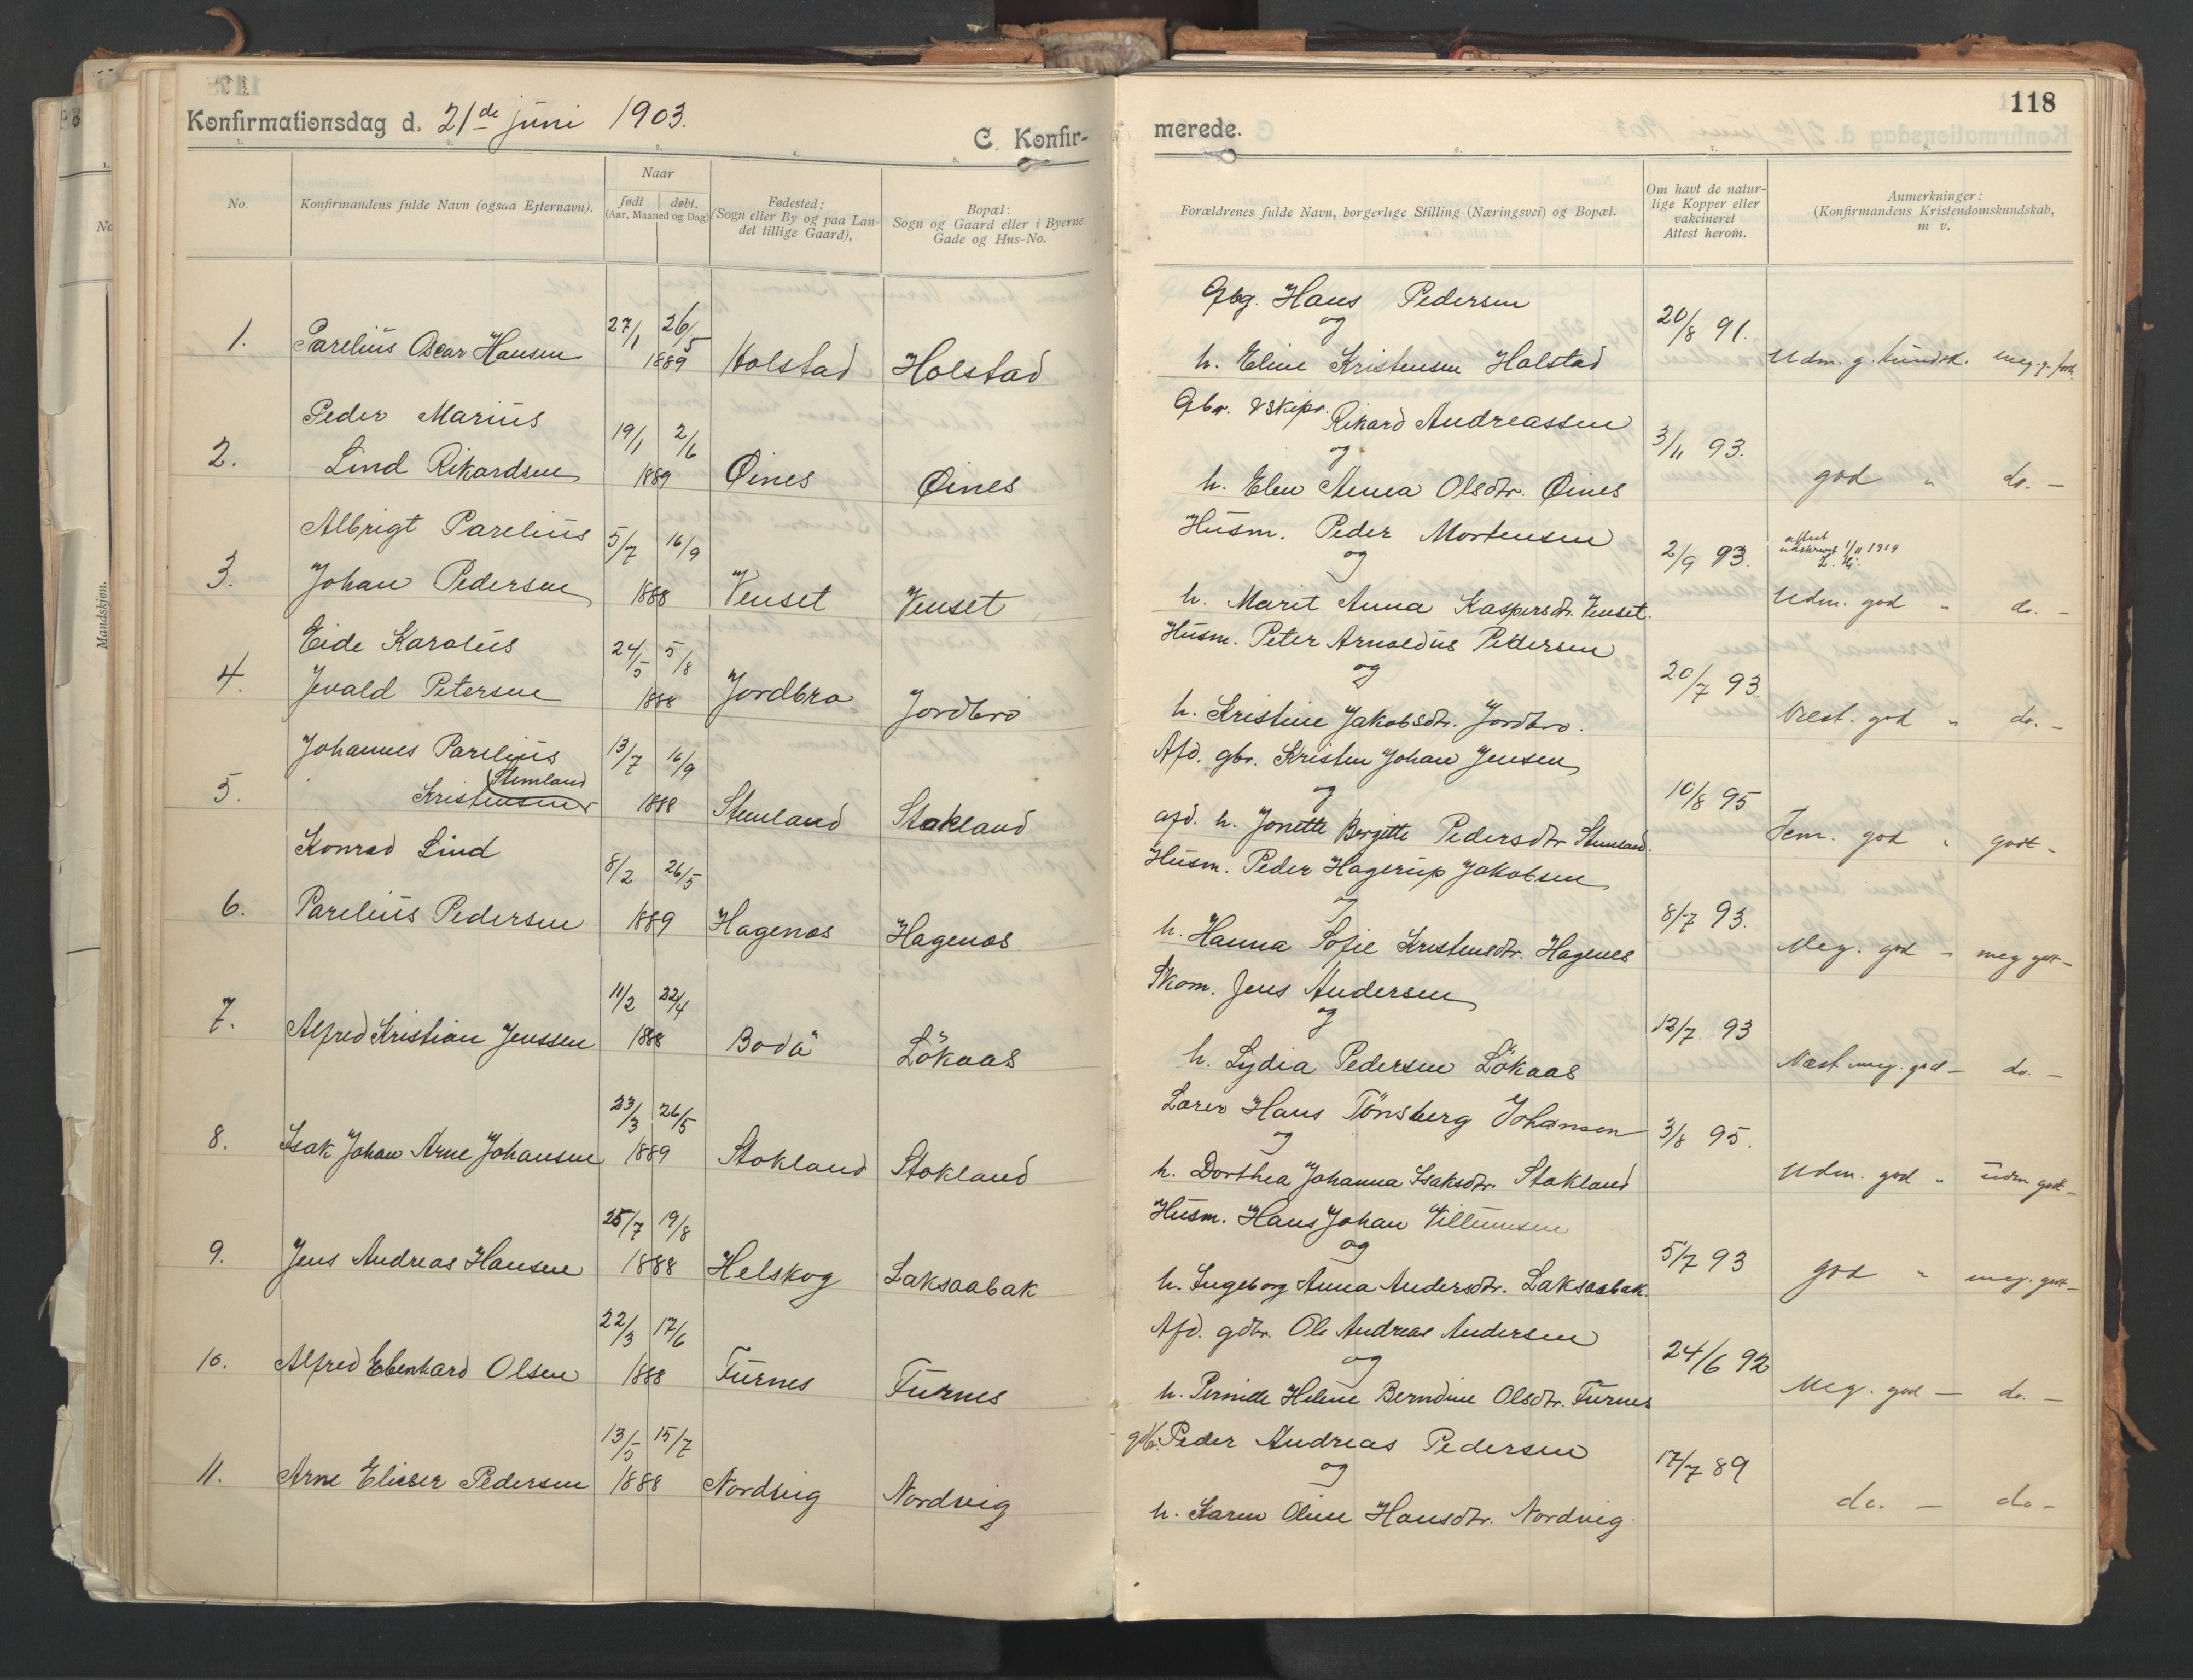 Konfirmationsdag d. 21de juni 1903.
C. Konfir-
No.
Konfirmandens fulde Navn (ogsaa Efternavn).
Naar
født
døbt.
(Aar, Maaned og Dag)
Fødested:
(Sogn eller By og paa Lan-
det tillige Gaard),
Bopæl:
Sogn og Gaard eller i Byerne
Gade og Hus-No.
Mandskjøn.
1.
Parelius Oscar Hansen
27/1 26/5
1889
Holstad
Holstad
2.
Peder Marius
Lind Rikardsen
19/1 2/6
1889
Øines
Øines
3.
Albrigt Parelius
Johan Pedersen
5/7 16/9
1888
Venset
Venset
4.
Eide Karolus
Jevald Petersen
24/5 5/8
1888
Jordbro
Jordbro
5.
Johannes Parelius
Stemland
Kristensen
13/7 16/9
1888
Stemland
Stokland
6.
Konrad Lind
Parelius Pedersen
8/2 26/5
1889
Hagenes
Hagenes.
7.
Alfred Kristian Jenssen
11/2 22/4
1888
Bodö
Lökaas
8.
Isak Johan Arne Johansen
23/3 26/5
1889
Stokland
Stokland
9.
Jens Andreas Hansen
25/7 19/8
1888
Helskog
Laksaabak
10.
Alfred Ebenhard Olsen
22/3 17/6
1888
Furnes
Furnes
11.
Arne Elieser Pedersen
13/5 15/7
1888
Nordvig
Nordvig
118
merede.
Forældrenes fulde Navn, borgerlige Stilling (Næringsvei) og Bopæl.
Om havt de natur-
lige Kopper eller
vakcineret
Attest herom.
Anmerkninger:
(Konfirmandens Kristendomskundskab,
m v.
Gbg. Hans Pedersen
og
h. Eline Kristensen Holstad
20/8 91.
Udm. g. kundsk. meg. g.
Gbr. & skipr. Rikard Andreassen
og
h. Elen Anna Olsdtr. Øines
3/11 93.
god " do. –
Husm. Peder Mortensen
og
h. Marit Anna Kaspersdtr. Venset.
2/9 93.
attest
udskrevet 1/11 1919
Udm. god " do. –
Husm. Peter Arnoldus Pedersen
og
h. Kristine Jakobsdtr. Jordbro.
20/7 93.
Næst. god " do. –
Afd. gbr. Kristen Johan Jensen
og
afd. h. Jonette Bergitte Pedersdtr Stemland.
10/8 95
Tem. god " godt –
Husm. Peder Hagerup Jakobsen
og
h. Hanna Sofie Kristensdtr. Hagenes
8/7 93.
Meg. god – meg godt –
Skom. Jens Andersen
og
h. Lydia Pedersen Lökaas
12/7. 93
Næst meg. god – do. –
Lærer Hans Tönsberg Johansen
og
h. Dorthea Johanna Isaksdtr. Stokland
3/8 95.
Udm. god " udm godt –
Husm. Hans Johan Villumsen
og
h. Ingeborg Anna Andersdtr. Laksaabak.
5/7 93
god " meg. godt –
Afd. gdbr. Ole Andreas Andersen
og
h. Pernide Helene Berndine Olsdtr. Furnes
24/6 92
Meg. god – do. –
Peder Andreas Pedersen
og
h. Karen Oline Hansdtr. Nordvig.
17/7 89
do. – do –